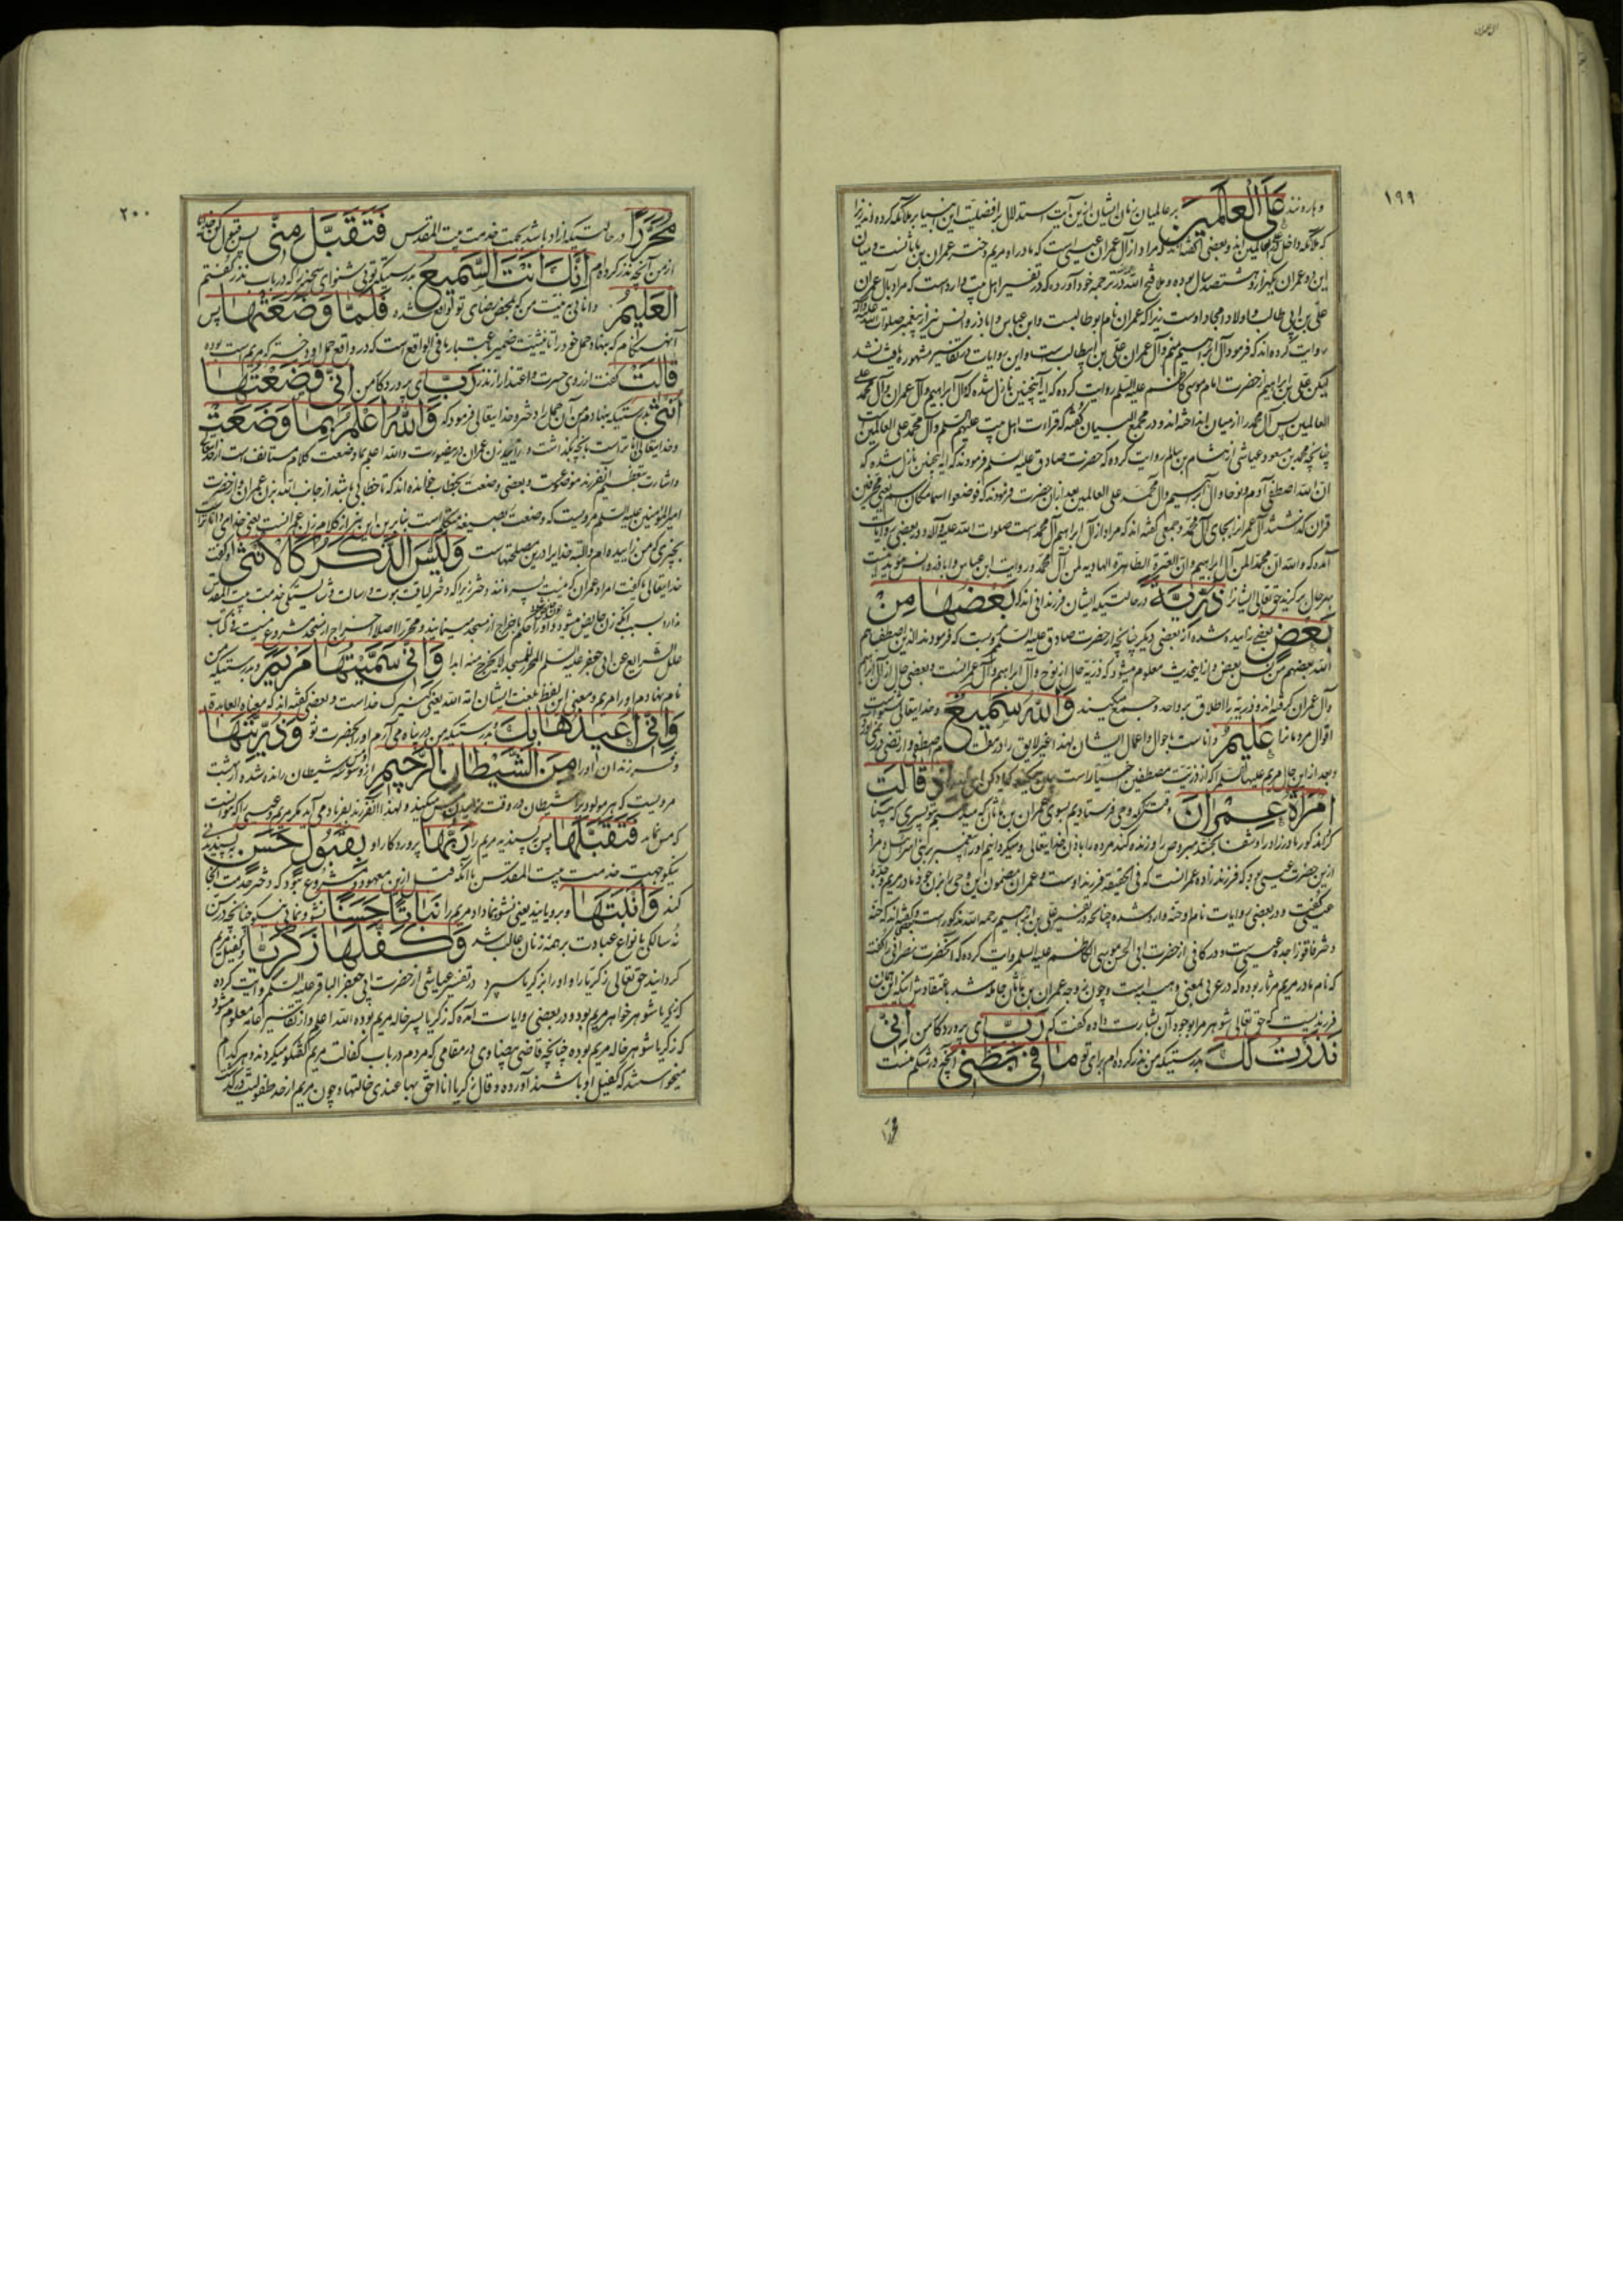 ال عمران
١٩٩
و هارونند عَلَى الْعَالَمِينَ بر عالمیان زمان ایشان ازین آیت استدلال بر افضلیت انبیا بر ملائکه کرده اند زیرا
که ملائکه داخل عالمین اند و بعضی گفته اند که مراد از آل عمران عیسی است که مادر او مریم دختر عمران بن ماثانست و میان
این دو عمران یکهزار و هشتصد سال بوده و ملا فتح الله در ترجمه خود آورده که در تفسیر اهل بیت وارد است که مراد بآل عمران
علی بن ابی طالب و اولاد امجاد اوست زیرا که عمران نام ابو طالبست و ابن عباس و اباذر و انس نیز از پیغمبر صلوات الله علیه و آله
روایت کرده اند که فرمود آل ابراهیم منم و آل عمران علی بن ابیطالب است و این روایات در تفاسیر مشهوره یافت نشد
لیکن علی بن ابراهیم از حضرت امام موسی کاظم علیه السلم روایت کرده که این آیه اینچنین نازل شده که و آل ابراهیم و آل عمران و آل محمد علی
العالمین پس آل محمد را از میان انداخته اند و در مجمع البیان گفته که قراءت اهل بیت علیهم السلم و آل محمد علی العالمین است
چنانچه محمد بن مسعود عیاشی از هشام بن سالم روایت کرده که حضرت صادق علیه السلم فرمودند که آیه اینچنین نازل شده که
ان الله اصطفی آدم و نوحا و آل ابراهیم و آل محمد علی العالمین بعد ازان حضرت فرمودند که فوضعوا اسما مکان اسم یعنی محرفین
قران گذاشتند آل عمران را بجای آل محمد و جمعی گفته اند که مراد از آل ابراهیم آل محمد ست صلوات الله علیه و آله و در بعضی روایات
آمده که والله ان محمدا لمن آل ابراهیم و ان العترة الطاهرة الهادیه لمن آل محمد و روایت ابن عباس و اباذر و انس مؤید نیست
بهر حال برگزید حق تعالی ایشانرا ذُرِّيَّةً در حالتیکه ایشان فرزندانی اند که بَعْضُهَا مِنْ
بَعْضٍ بعضی زاییده شده از بعضی دیگر چنانچه از حضرت صادق علیه السلم مرویست که فرمودند الذین اصطفاهم
الله بعضهم من نسل بعض و از اینحدیث معلوم میشود که ذریّة حال از نوح و آل ابراهیم و آل عمرانست و بعضی حال از آل ابراهیم
و آل عمران گرفته اند و ذریّه را اطلاق بر واحد و جمع میکنند وَاللّٰهُ سَمِيعٌ و خدایتعالی شنواست
اقوال مردمانرا عَلِيمٌ داناست باحوال و اعمال ایشان
و بعد ازین حال مریم علیها السلم که از ذریّت مصطفین اخیار است بیان میکند که یاد کن إِذْ قَالَتِ
امْرَأَةُ عِمْرَانَ
ازین حضرت عیسی بود که فرزند زاده عمرانست که فی الحقیقة فرزند اوست و عمران مضمون این وحی را بزن خود مادر مریم و جدّهٔ
عیسی گفت و در بعضی روایات نام او حنّه وارد شده چنانچه در تفسیر علی بن ابراهیم رحمه الله مذکور است و گفته اند که حنّه
دختر فاقوذا جده عیسی است و در کافی از حضرت ابی الحسن موسی الکاظم علیه السلم روایت کرده که آنحضرت نصرانی را گفته
که نام مادر مریم مرثا ربوده که در عربی بمعنی وهیبه است و چون زوجه عمران بن ماثان حامله شد باعتقاد ش اینکه این همان
فرزندیست که حق تعالی شوهر مرا بوجود آن بشارت داده گفت که رَبِّ ای پروردگار من إِنِّي
نَذَرْتُ لَكَ بدرستیکه من نذر کرده ام برای تو مَا فِي بَطْنِي آنچه در شکم منست
محررا
٢٠٠
مُحَرَّرًا در حالتیکه آزاد باشد بجهت خدمت بیت المقدس فَتَقَبَّلْ مِنِّي پس قبول کن خدایا
از من آنچه نذر کرده ام إِنَّكَ أَنْتَ السَّمِيعُ بدرستیکه تویی شنوای سخن را که در باب نذر گفتم
الْعَلِيمُ دانا بی نیّت من که بمحض رضای تو واقع شده فَلَمَّا وَضَعَتْهَا پس
آنهنگام که بنهاد حمل خود را تانیثیّت ضمیر باعتبار ما فی الواقع است که در واقع حمل او دختر که مریم است بوده
قَالَتْ گفت از روی حسرت و اعتذار از نذر رَبِّ ای پروردگار من إِنِّي وَضَعْتُهَا
أُنْثَى بدرستیکه بنهادم من آن حمل را دختر و خدایتعالی فرمود که وَاللّٰهُ أَعْلَمُ بِمَا وَضَعَتْ
و خدایتعالی داناتر است بانچه بگذاشت و زایید زن عمران درینصورت والله اعلم بما وضعت کلام مستانف است از خدایتعالی
و اشارت بتعظیم آنفرزند موضوعست و بعضی وضعت بخطاب خوانده اند که تا خطابی باشد از جانب الله بزن عمران و از حضرت
امیر المؤمنین علیه السلم مرویست که وضعت بصیغه متکلم است بنابرین این نیز از کلام زن عمرانست یعنی خدای داناتر است
بچیزی که من زاییده ام و البته خدا را درین مصلحتهاست وَلَيْسَ الذَّكَرُ كَالْأُنْثَى او گفت
خدایتعالی یا گفت امراة عمران که نیست پسر مانند دختر زیرا که دختر لیاقت نبوت و رسالت و شایستگی خدمت بیت المقدس
ندارد بسبب آنکه زن حایض میشود و او را حکم باخراج از مسجد مینمایند و محرّر را اصلا اخراج از مسجد مشروع نیست و در کتاب
علل الشرایع عن ابی جعفر علیه السلم المحرر للمسجد لا یخرج منه ابدا وَإِنِّي سَمَّيْتُهَا مَرْيَمَ و بدرستیکه من
نام نهادم او را مریم و معنی این لفظ بلغت ایشان امة الله یعنی کنیزک خداست و بعضی گفته اند که معناه العابدة
وَإِنِّي أُعِيذُهَا بِكَ و بدرستیکه من در پناه می آرم او را بحضرت تو وَذُرِّيَّتَهَا
و فرزندان او را مِنَ الشَّيْطَانِ الرَّجِيمِ از وسوسه شیطان رانده شده از بهشت
مرویست که هر مولود را شیطان در وقت زاییدن مس میکند و لهذا آنفرزند بفریاد می آید مگر مریم و عیسی را که نتوانست
که مس نماید فَتَقَبَّلَهَا پس پسندید مریم را رَبُّهَا پروردگار او بِقَبُولٍ حَسَنٍ به پسندیدنی
نیکو بجهت خدمت بیت المقدس با آنکه قبل ازین معهود و مشروع نبود که دختر خدمت آنجا
کند وَأَنْبَتَهَا و برویانید یعنی نشو نما داد مریم را نَبَاتًا حَسَنًا نشو و نمایی نیکو چنانچه در سن
نه سالگی بانواع عبادت بر همه زنان غالب شد وَكَفَّلَهَا زَكَرِيَّا و کفیل مریم
گردانید حق تعالی زکریا را و او را بزکریا سپرد در تفسیر عیاشی از حضرت ابی جعفر الباقر علیه السلم روایت کرده
که زکریا شوهر خواهر مریم بود و در بعضی روایات آمده که زکریا پسر خاله مریم بوده الله اعلم و از تفاسیر عامه معلوم میشود
که زکریا شوهر خاله مریم بوده چنانچه قاضی بیضاوی در مقامی که مردم در باب کفالت مریم گفتگو میکردند و هر کدام
میخواستند که کفیل او باشند آورده و قال زکریا انا احق بها عندی خالتها و چون مریم از حد طفولیت در گذشت